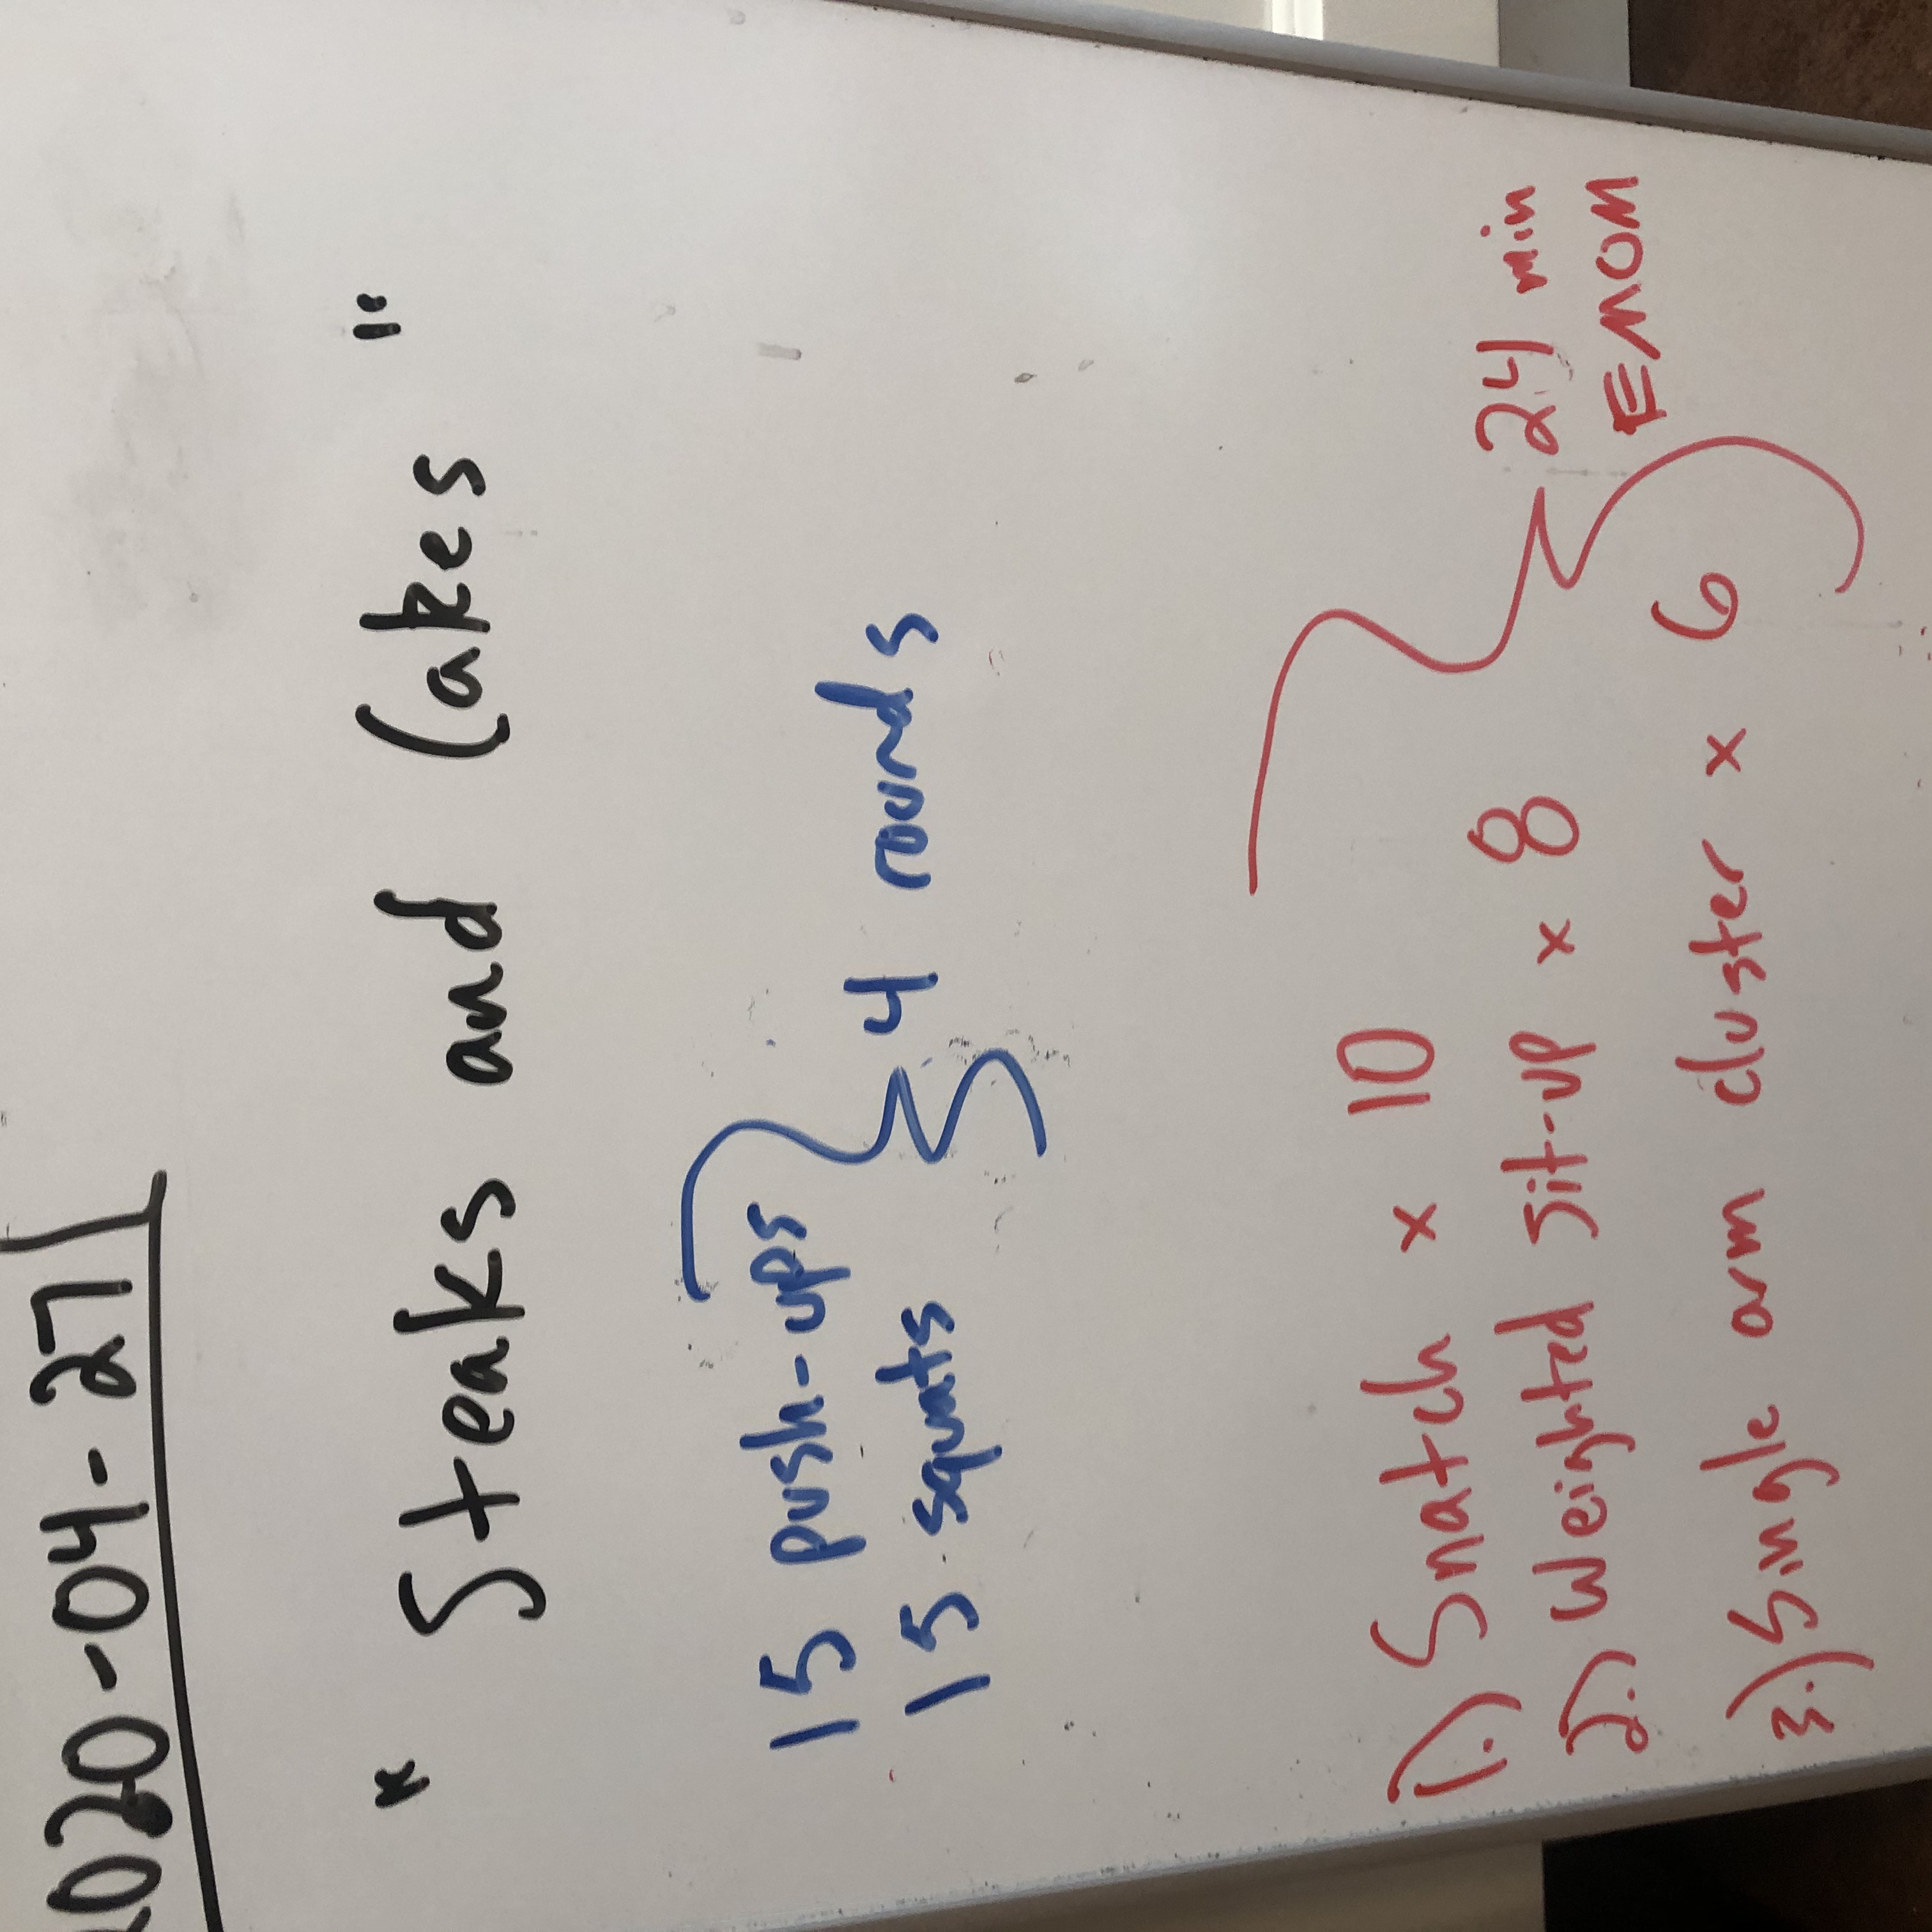 2020-04-27
"Steaks and Cakes"
15 push-ups
15 squats
4 rounds
1.) Snatch x 10
2.) Weighted sit-up x 8
3.) Single arm cluster x 6
24 min
EMOM